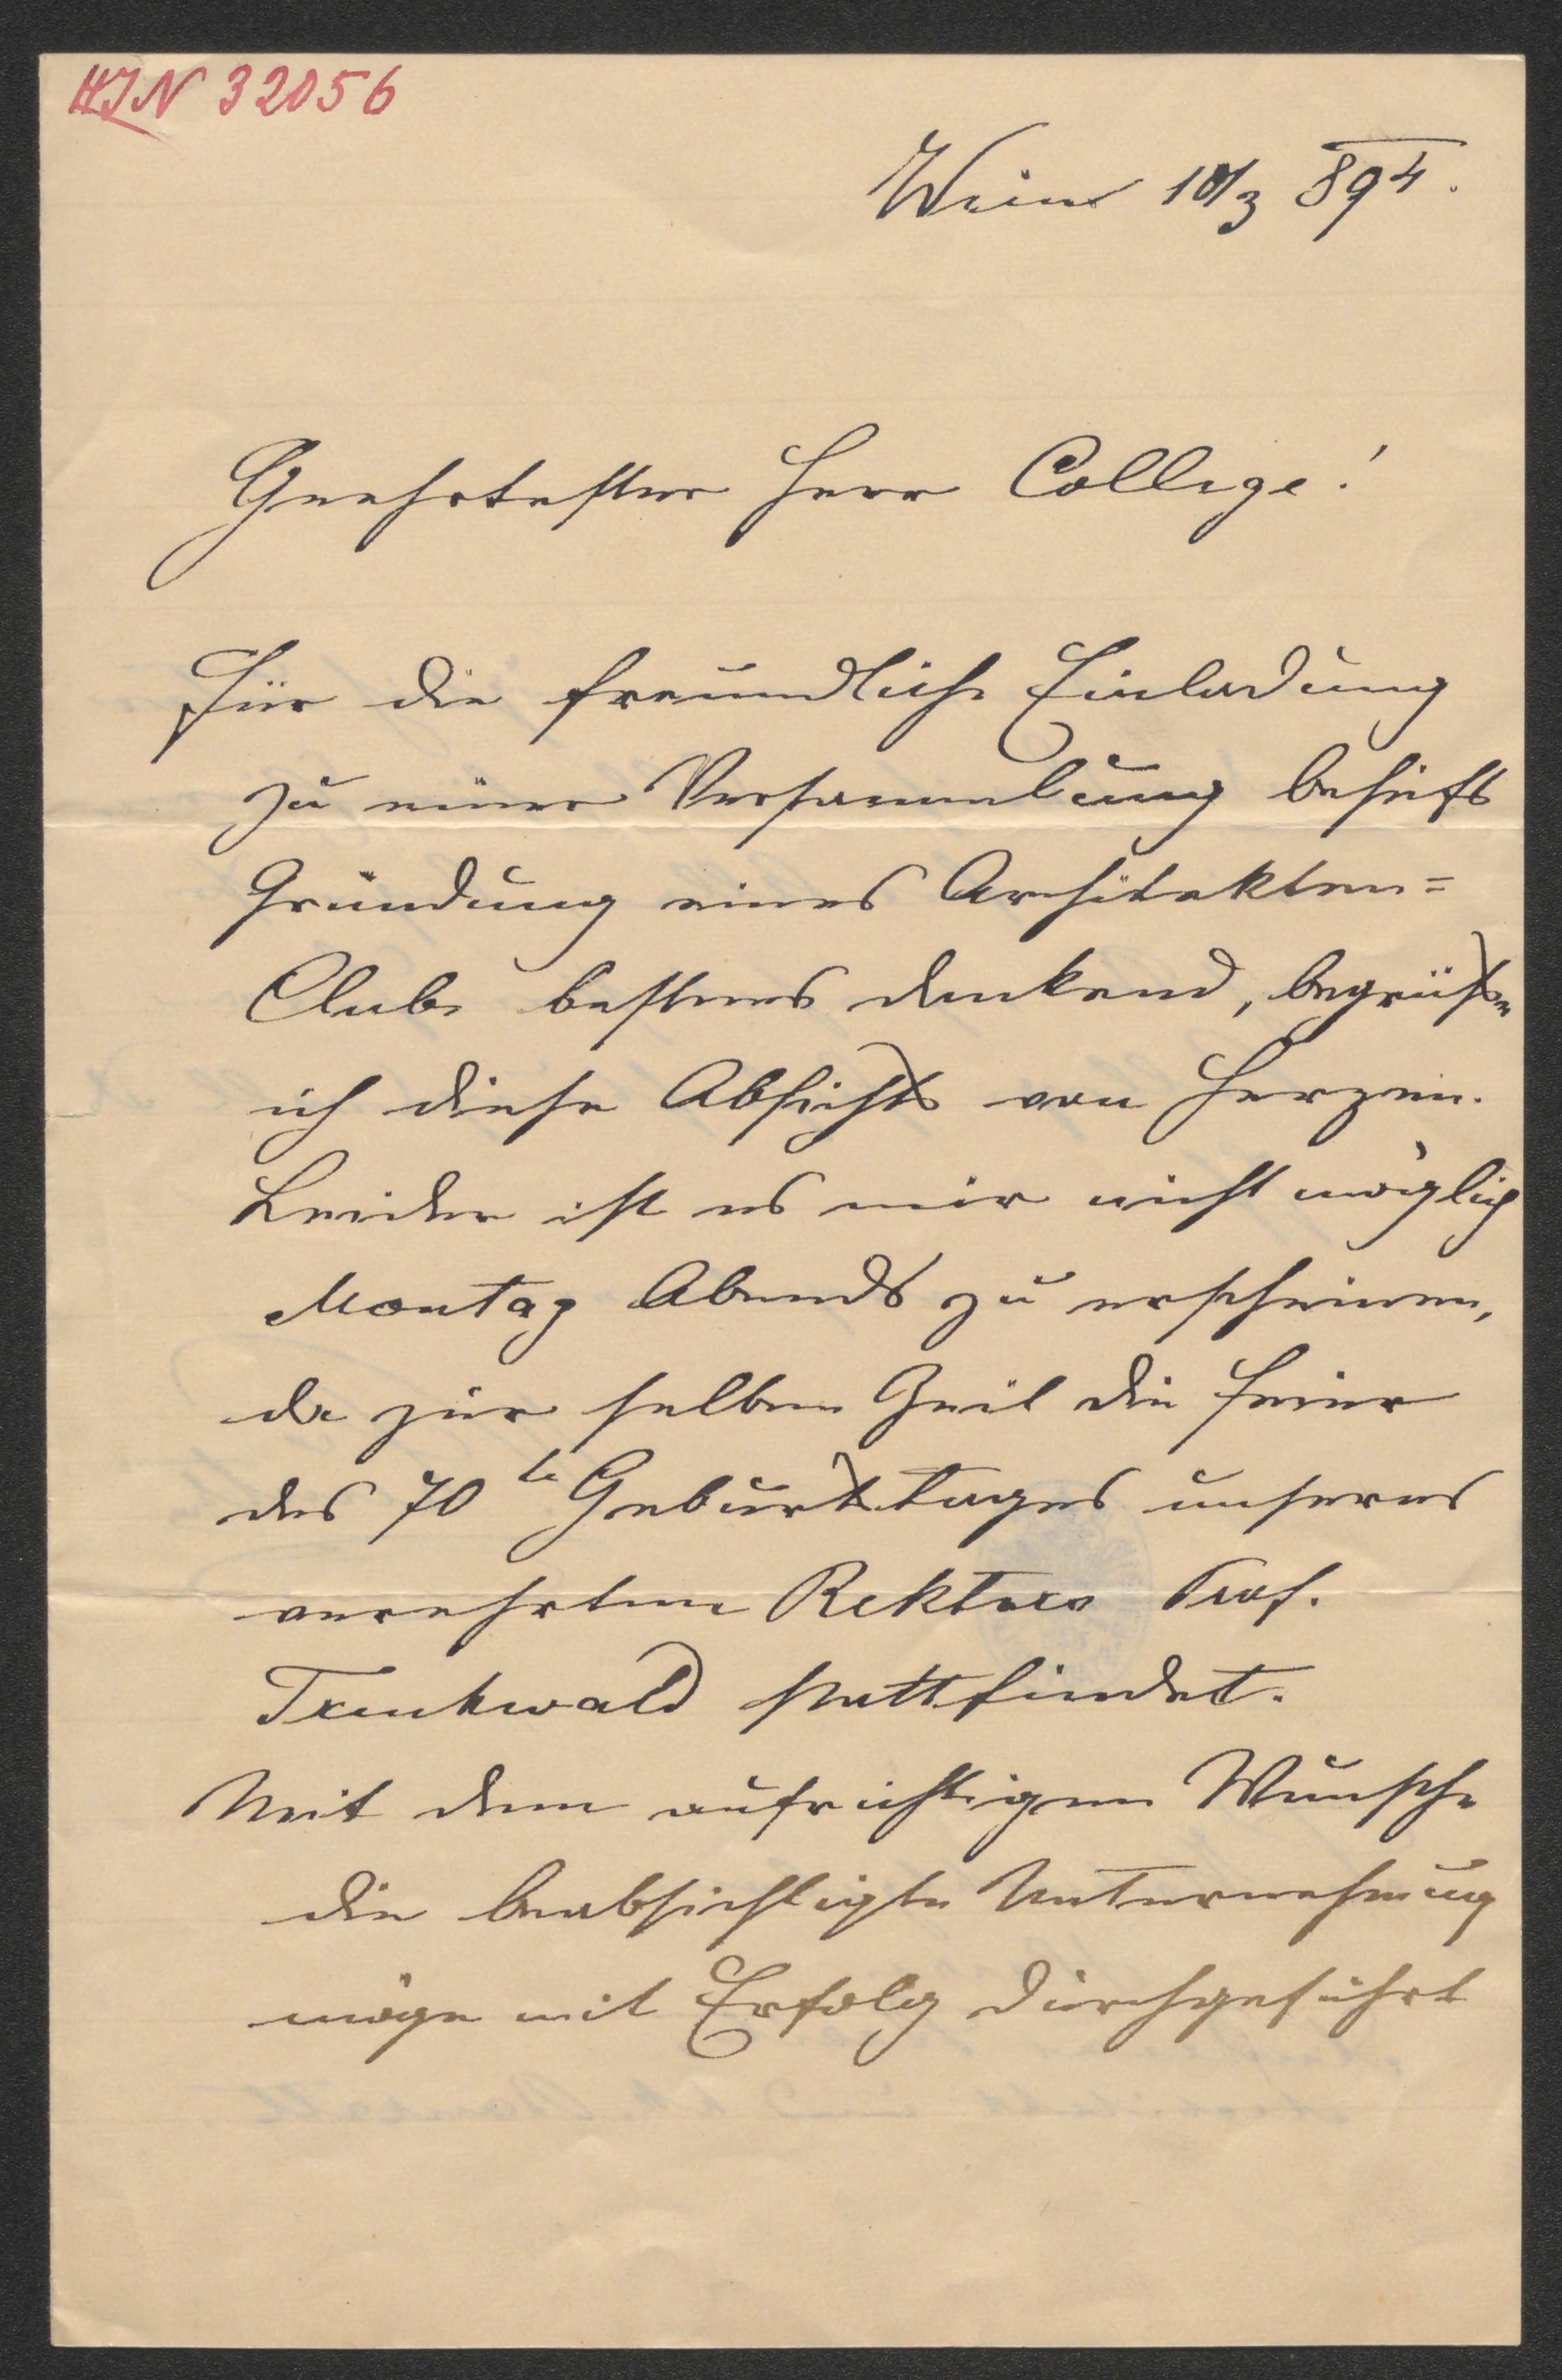 HIN 32056
Wien 10/3 894.
Geehrtester Herr College!
Für die freundliche Einladung
zu einer Versammlung behufs
Gründung eines Architekten=
Clubs bestens dankend, begrüße
ich diese Absicht von Herzen.
Leider ist es mir nicht möglich
Montag Abends zu erscheinen,
da zur selben Zeit die Feier
des 70te Geburtstages unseres
verehrten Rektors Prof.
Trenkwald stattfindet.
Mit dem aufrichtigen Wunsche
die beabsichtigte Unternehmung
möge mit Erfolg durchgeführt